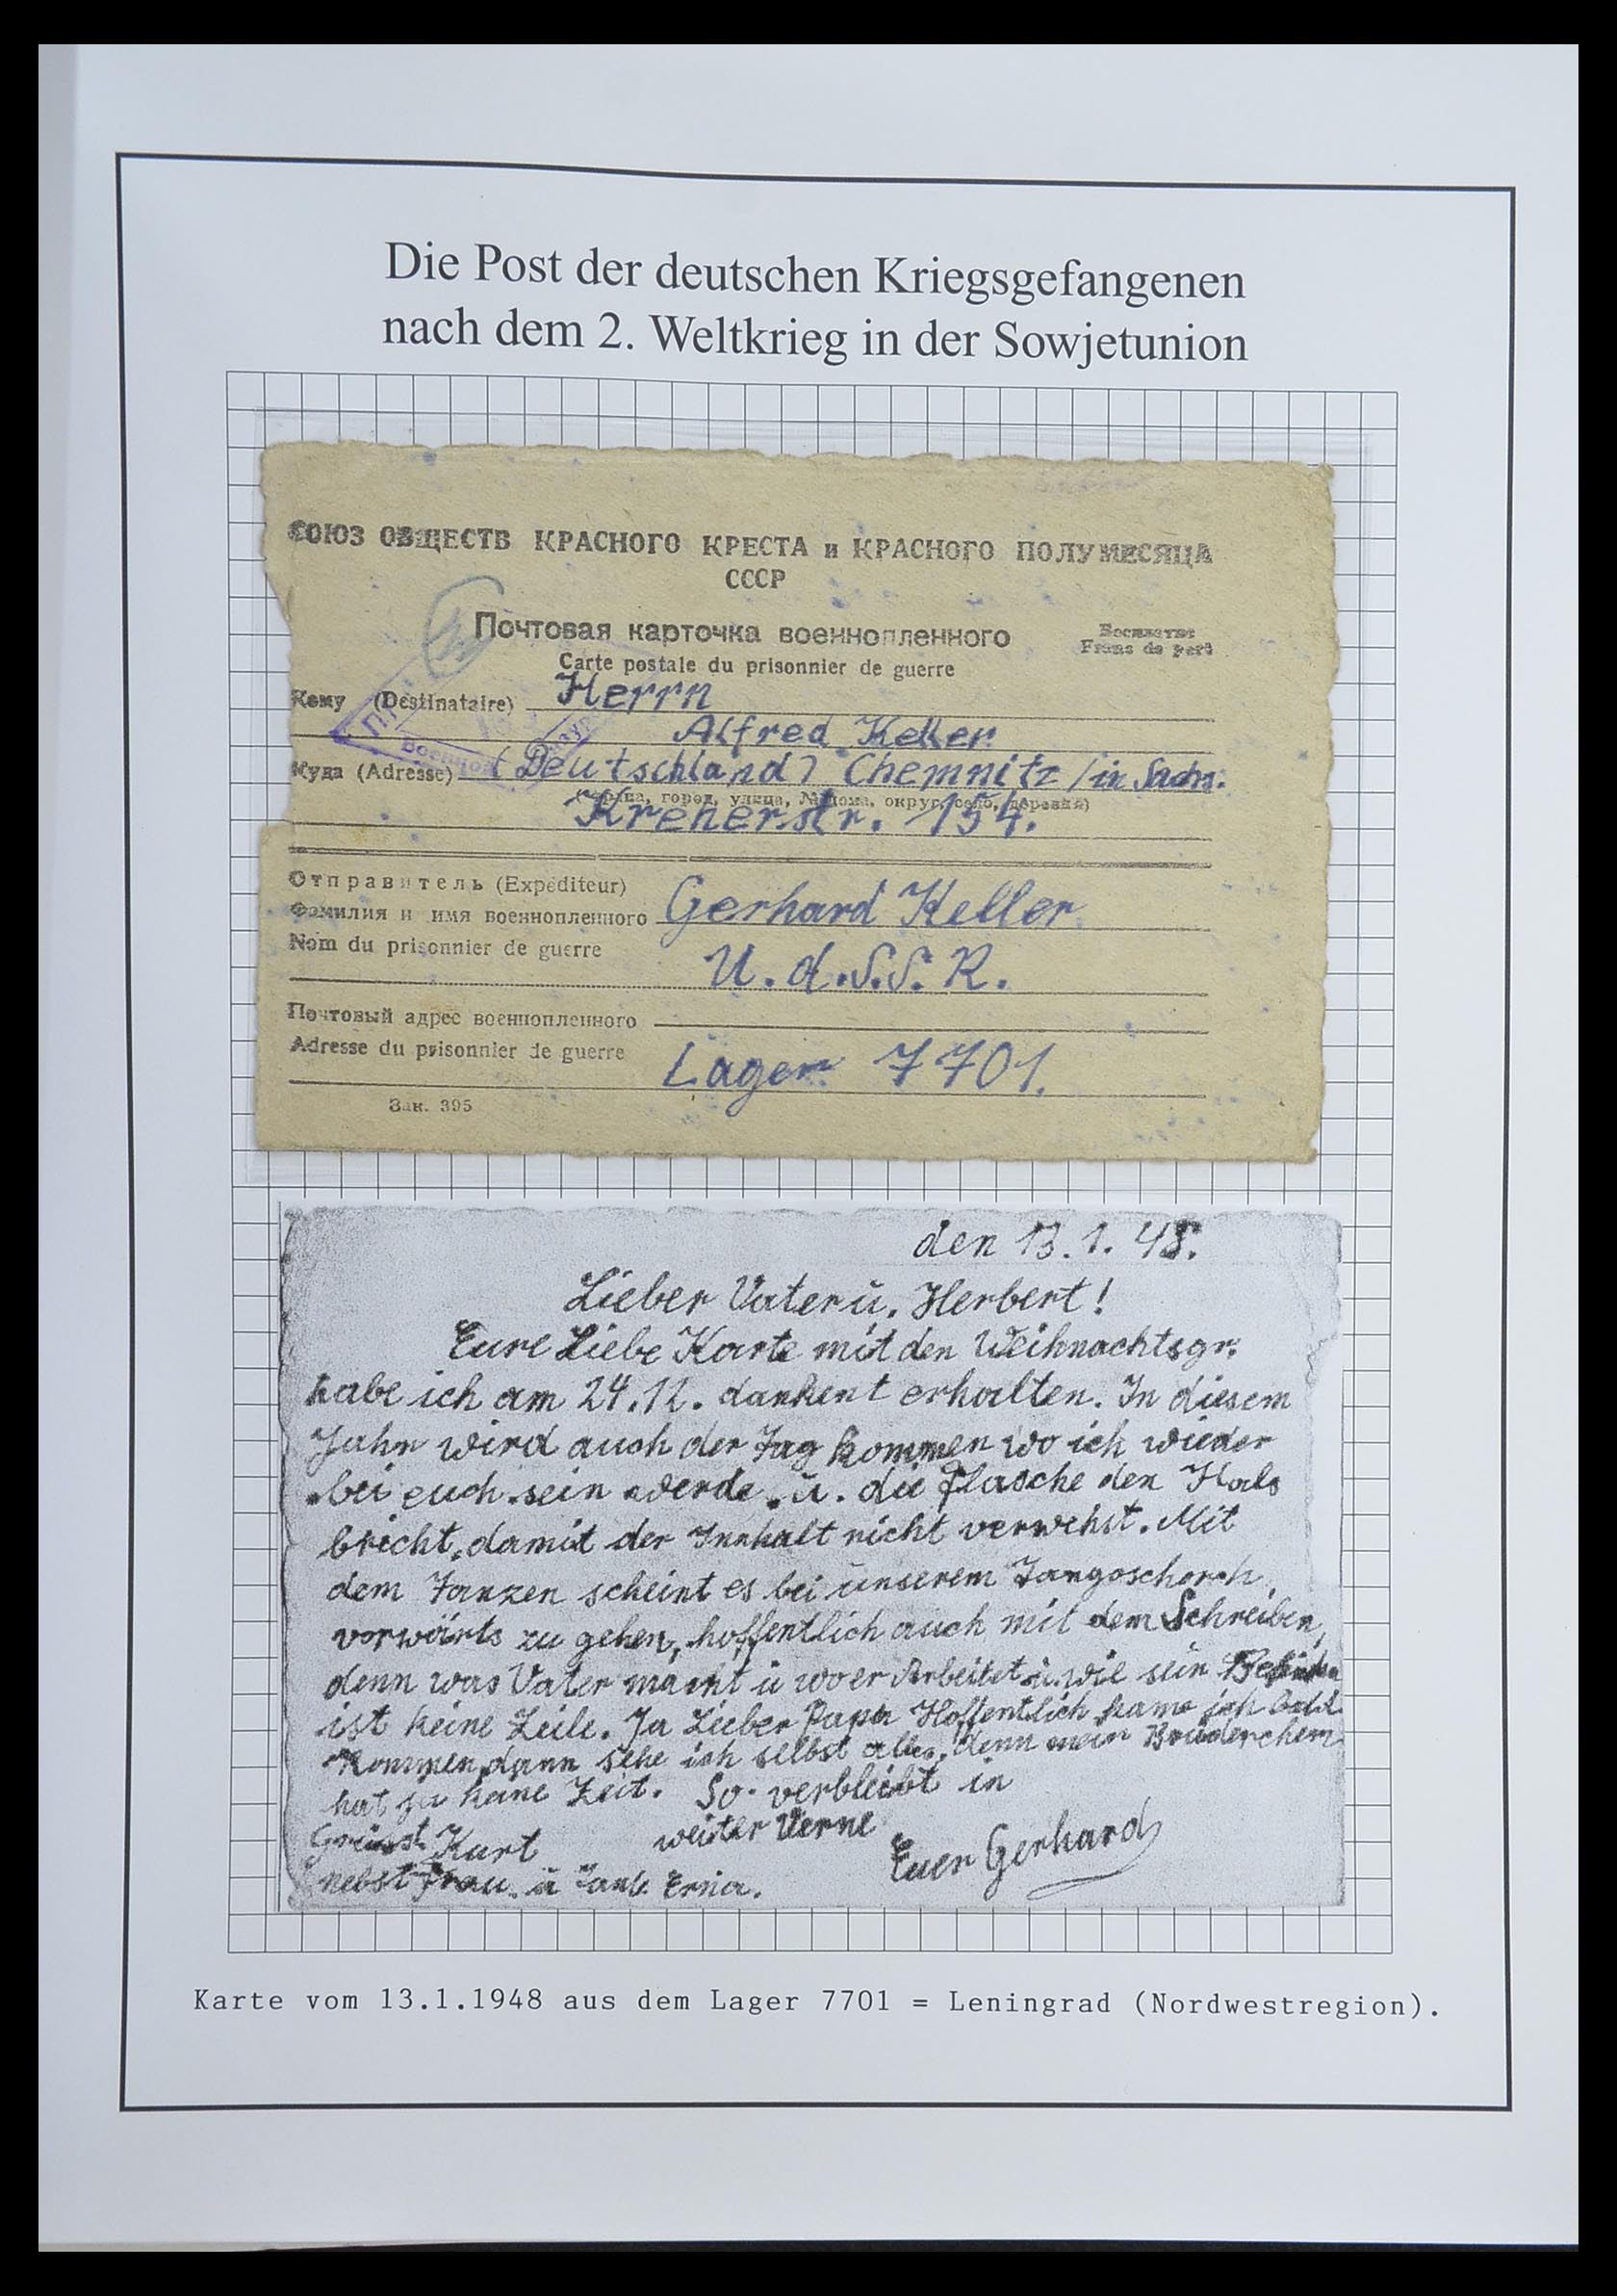 Die Post der deutschen Kriegsgefangenen
nach dem 2. Weltkrieg in der Sowjetunion
СОЮЗ ОБЩЕСТВ КРАСНОГО КРЕСТА и КРАСНОГО ПОЛУМЕСЯЦА
СССР
Почтовая карточка военнопленного
Бесплатно
Carte postale du prisonnier de guerre
Franc de port
Кому (Destinataire) Herrn
Alfred Keller
Куда (Adresse) (Deutschland) Chemnitz / in Sachs.
(страна, город, улица, № дома, округ, село, деревня)
Kreherstr. 154.
Отправитель (Expéditeur)
Фамилия и имя военнопленного Gerhard Keller
Nom du prisonnier de guerre
U.d.S.S.R.
Почтовый адрес военнопленного
Adresse du prisonnier de guerre Lager 7701.
Зак. 395
den 13.1.48.
Lieber Vater ü. Herbert!
Eure Liebe Karte mit den Weihnachtsgr.
habe ich am 24.12. dankent erhalten. In diesem
Jahr wird auch der Tag kommen wo ich wieder
bei euch sein werde. ü. die Flasche den Hals
bricht, damit der Innhalt nicht verwehst. Mit
dem Tanzen scheint es bei ünserem Tangoschorch
vorwärts zu gehen, hoffentlich auch mit dem Schreiben,
denn was Vater macht ü wo er Arbeitet ü. wie sein Befinden
ist keine Zeile. Ja Lieber Papa Hoffentlich kann ich bald
kommen, dann sehe ich selbst alles, denn mein Brüderchen
hat ja keine Zeit. So verbleibt in
weiter Verne
Grüsst Kurt
Euer Gerhard
nebst Frau. ü Tante Erna.
Karte vom 13.1.1948 aus dem Lager 7701 = Leningrad (Nordwestregion).